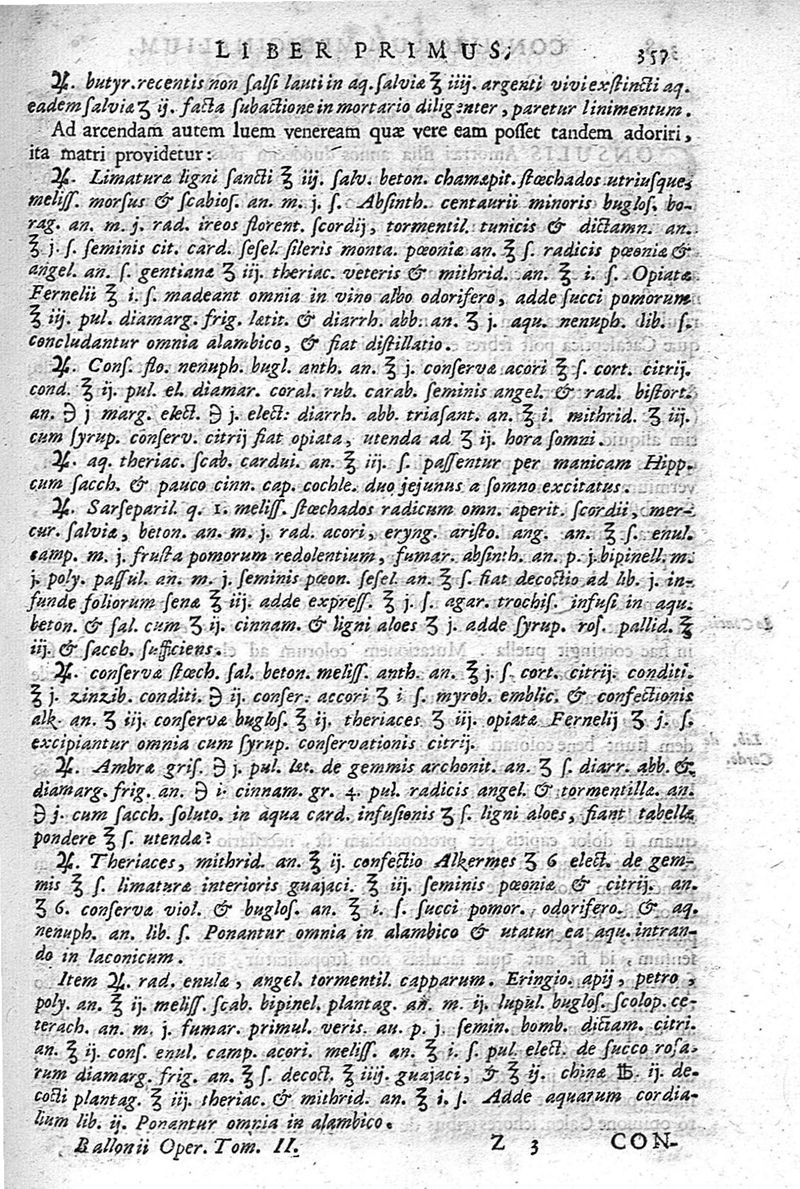 LIBER PRIMUS. 357
℞. butyr. recentis non ſalſi lauti in aq. ſalviæ ℥ iiij. argenti vivi exſtincti aq.
eadem ſalviæ ʒ ij. facta ſubactione in mortario diligenter, paretur linimentum.
Ad arcendam autem luem veneream quæ vere eam poſſet tandem adoriri,
ita matri providetur:
℞. Limaturæ ligni ſancti ℥ iij. ſalv. beton. chamæpit. ſtœchados utriuſque,
meliſſ. morſus & ſcabioſ. an. m. j. ſ. Abſinth. centaurii minoris bugloſ. bo-
rag. an. m. j. rad. ireos florent. ſcordij, tormentil. tunicis & dictamn. an.
℥ j. ſ. ſeminis cit. card. ſeſel. ſileris monta. pœoniæ an. ℥ ſ. radicis pœoniæ &
angel. an. ſ. gentianæ ʒ iij. theriac. veteris & mithrid. an. ℥ i. ſ. Opiatæ
Fernelii ℥ i. ſ. madeant omnia in vino albo odorifero, adde ſucci pomorum
℥ iij. pul. diamarg. frig. lætit. & diarrh. abb. an. ʒ j. aqu. nenuph. lib. ſ.
concludantur omnia alambico, & fiat diſtillatio.
℞. Conſ. flo. nenuph. bugl. anth. an. ℥ j. conſervæ acori ℥ ſ. cort. citrij.
cond. ℥ ij. pul. el. diamar. coral. rub. carab. ſeminis angel. & rad. biſtort.
an. ℈ j marg. elect. ℈ j. elect: diarrh. abb. triaſant. an. ℥ i. mithrid. ʒ iij.
cum ſyrup. conſerv. citrij fiat opiata, utenda ad ʒ ij. hora ſomni.
℞. aq. theriac. ſcab. cardui. an. ℥ iij. ſ. paſſentur per manicam Hipp.
cum ſacch. & pauco cinn. cap. cochle. duo jejunus a ſomno excitatus.
℞. Sarſeparil. q. 1. meliſſ. ſtœchados radicum omn. aperit. ſcordii, mer-
cur. ſalviæ, beton. an. m. j. rad. acori, eryng. ariſto. ang. an. ℥ ſ. enul.
camp. m. j. fruſta pomorum redolentium, fumar. abſinth. an. p. j. bipinell. m.
j. poly. paſſul. an. m. j. ſeminis pœon. ſeſel. an. ℥ ſ. fiat decoctio ad lib. j. in-
funde foliorum ſenæ ℥ iij. adde expreſſ. ℥ j. ſ. agar. trochiſ. infuſi in aqu.
beton. & ſal. cum ʒ ij. cinnam. & ligni aloes ʒ j. adde ſyrup. roſ. pallid. ℥
iij. & ſacch. ſufficiens.
℞. conſervæ ſtœch. ſal. beton. meliſſ. anth. an. ℥ j. ſ. cort. citrij. conditi.
℥ j. zinzib. conditi. ℈ ij. conſer. accori ʒ i ſ. myrob. emblic. & confectionis
alk. an. ʒ iij. conſervæ bugloſ. ℥ ij. theriaces ʒ iij. opiatæ Fernelij ʒ j. ſ.
excipiantur omnia cum ſyrup. conſervationis citrij.
℞. Ambræ griſ. ℈ j. pul. læt. de gemmis archonit. an. ʒ ſ. diarr. abb. &
diamarg. frig. an. ℈ i. cinnam. gr. 4. pul. radicis angel. & tormentillæ. an.
℈ j. cum ſacch. ſoluto. in aqua card. infuſionis ʒ ſ. ligni aloes, fiant tabellæ
pondere ℥ ſ. utendæ?
℞. Theriaces, mithrid. an. ℥ ij. confectio Alkermes ʒ 6 elect. de gem-
mis ℥ ſ. limaturæ interioris guajaci. ℥ iij. ſeminis pœoniæ & citrij. an.
ʒ 6. conſervæ viol. & bugloſ. an. ℥ i. ſ. ſucci pomor. odorifero. & aq.
nenuph. an. lib. ſ. Ponantur omnia in alambico & utatur ea aqu. intran-
do in laconicum.
Item ℞. rad. enulæ, angel. tormentil. capparum. Eringio. apij, petro,
poly. an. ℥ ij. meliſſ. ſcab. bipinel. plantag. an. m. ij. lupul. bugloſ. ſcolop. ce-
terach. an. m. j. fumar. primul. veris. an. p. j. ſemin. bomb. dictam. citri.
an. ℥ ij. conſ. enul. camp. acori. meliſſ. an. ℥ i. ſ. pul. elect. de ſucco roſa-
rum diamarg. frig. an. ℥ ſ. decoct. ℥ iiij. guajaci, & ℥ ij. chinæ ℔. ij. de-
cocti plantag. ℥ iij. theriac. & mithrid. an. ℥ i. ſ. Adde aquarum cordia-
lium lib. ij. Ponantur omnia in alambico.
Ballonii Oper. Tom. II. Z 3 CON-